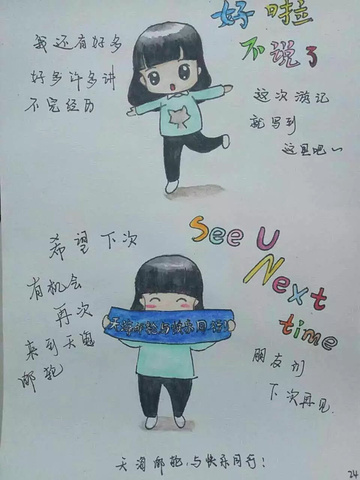 我还有好多
好多许多讲
不完经历
好啦
不说了
这次游记
就写到
这里吧~
希望下次
有机会
再次
来到天海
邮轮
See U
Next
time
天海邮轮与快乐同行!
朋友们
下次再见
天海邮轮,与快乐同行!
24